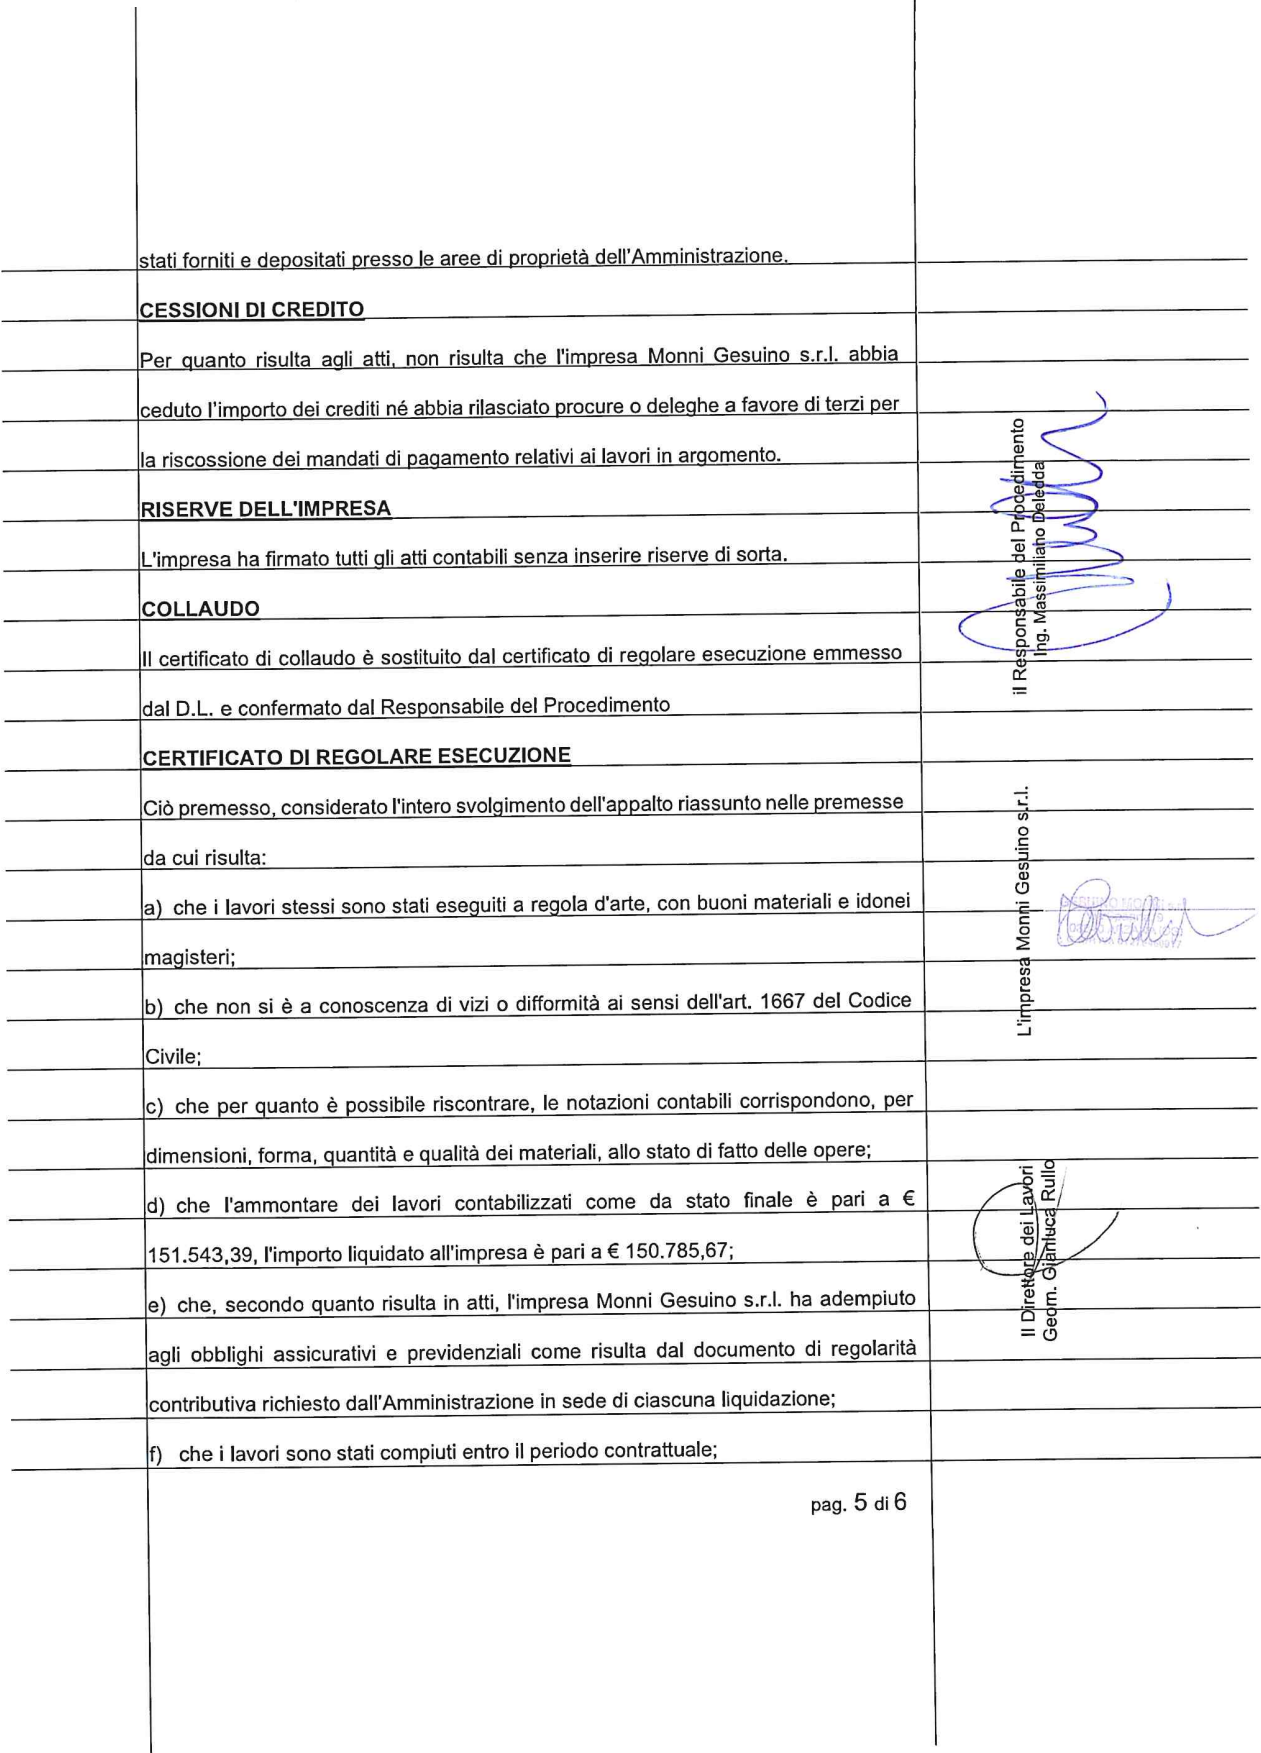 stati forniti e depositati presso le aree di proprietà dell'Amministrazione.
CESSIONI DI CREDITO
Per quanto risulta agli atti, non risulta che l'impresa Monni Gesuino s.r.l. abbia
ceduto l'importo dei crediti né abbia rilasciato procure o deleghe a favore di terzi per
la riscossione dei mandati di pagamento relativi ai lavori in argomento.
RISERVE DELL'IMPRESA
L'impresa ha firmato tutti gli atti contabili senza inserire riserve di sorta.
COLLAUDO
Il certificato di collaudo è sostituito dal certificato di regolare esecuzione emmesso
dal D.L. e confermato dal Responsabile del Procedimento
CERTIFICATO DI REGOLARE ESECUZIONE
Ciò premesso, considerato l'intero svolgimento dell'appalto riassunto nelle premesse
da cui risulta:
a) che i lavori stessi sono stati eseguiti a regola d'arte, con buoni materiali e idonei
magisteri;
b) che non si è a conoscenza di vizi o difformità ai sensi dell'art. 1667 del Codice
Civile;
c) che per quanto è possibile riscontrare, le notazioni contabili corrispondono, per
dimensioni, forma, quantità e qualità dei materiali, allo stato di fatto delle opere;
d) che l'ammontare dei lavori contabilizzati come da stato finale è pari a €
151.543,39, l'importo liquidato all'impresa è pari a € 150.785,67;
e) che, secondo quanto risulta in atti, l'impresa Monni Gesuino s.r.l. ha adempiuto
agli obblighi assicurativi e previdenziali come risulta dal documento di regolarità
contributiva richiesto dall'Amministrazione in sede di ciascuna liquidazione;
f) che i lavori sono stati compiuti entro il periodo contrattuale;
pag. 5 di 6
il Responsabile del Procedimento
Ing. Massimiliano Deledda
L'impresa Monni Gesuino s.r.l.
Il Direttore dei Lavori
Geom. Gianluca Rullo